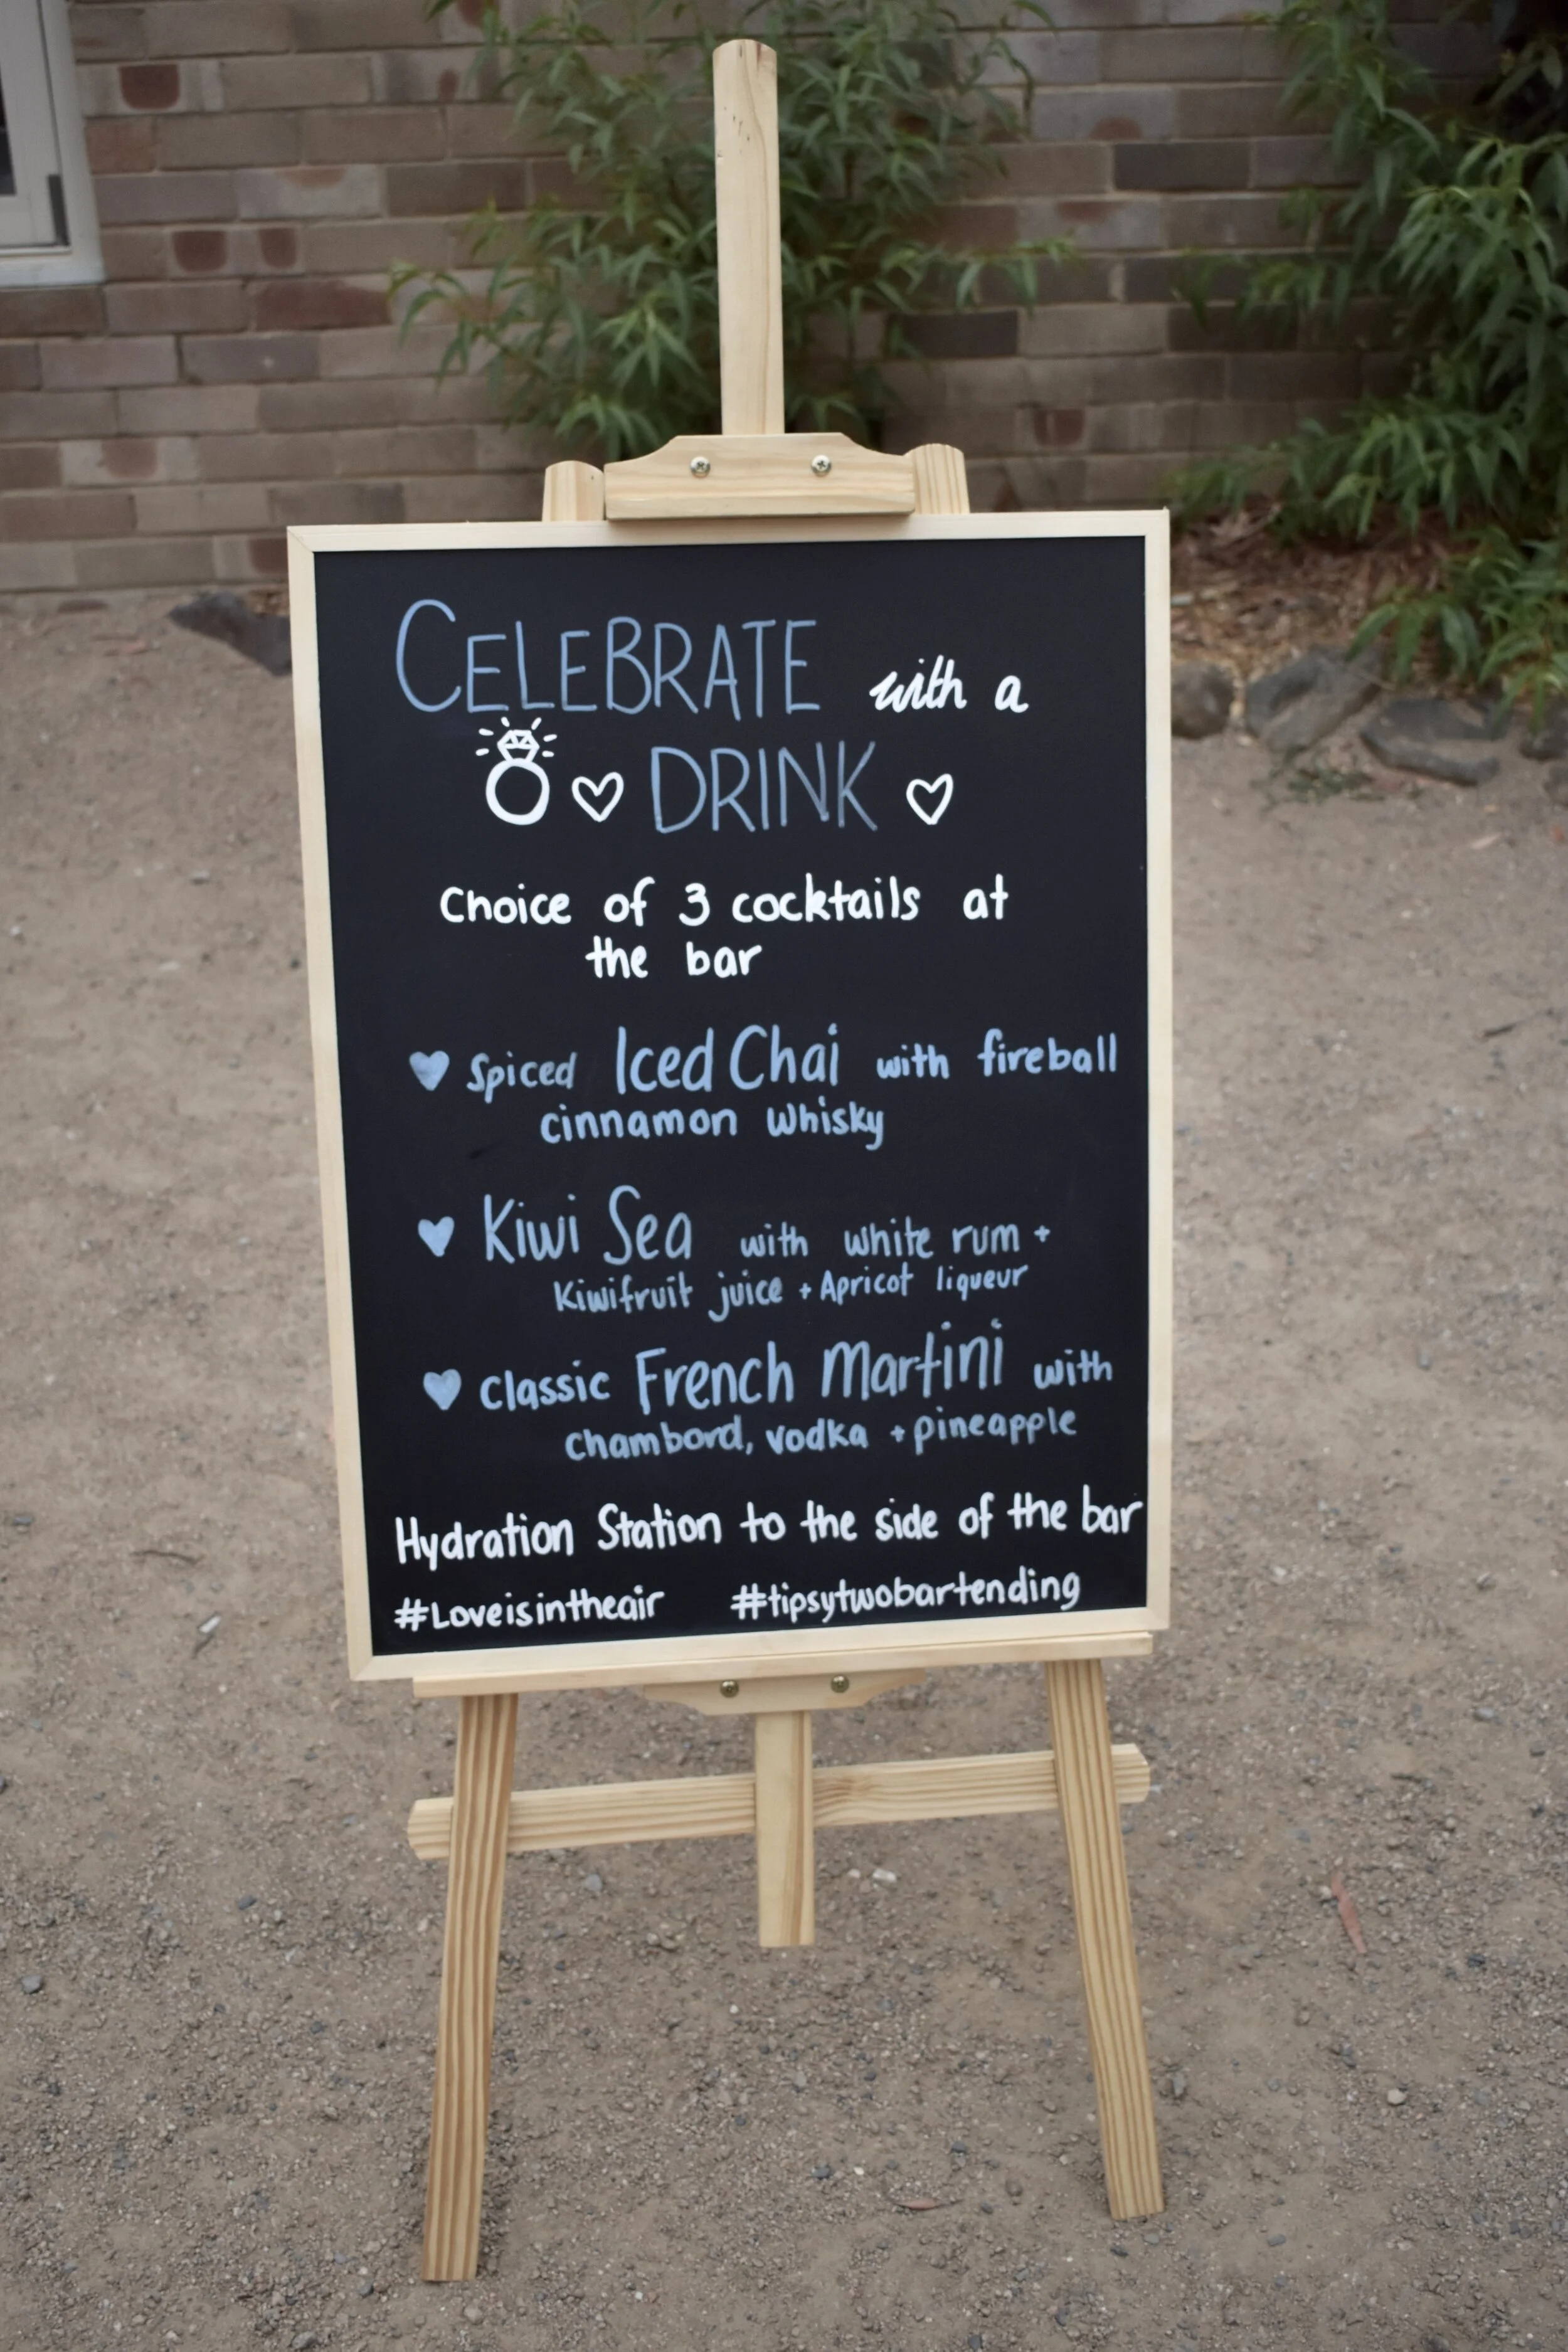 CELEBRATE with a
DRINK
Choice of 3 cocktails at
the bar
Spiced Iced Chai with fireball
cinnamon whisky
Kiwi Sea with white rum +
Kiwifruit juice + Apricot liqueur
Classic French Martini with
chambord, vodka + pineapple
Hydration Station to the side of the bar
#Loveisintheair #tipsytwobartending